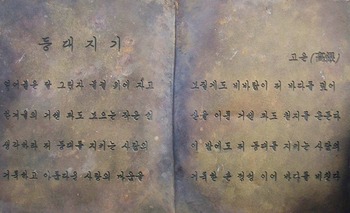 등대지기
고은(高銀)
얼어붙은 달 그림자 물결 위에 자고
한겨울의 거센 파도 모으는 작은 섬
생각하라 저 등대를 지키는 사람의
거룩하고 아름다운 사랑의 마음을
모질게도 비바람이 저 바다를 덮어
산을 이룬 거센 파도 천지를 흔든다
이 밤에도 저 등대를 지키는 사람의
거룩한 손 정성 이어 바다를 비친다